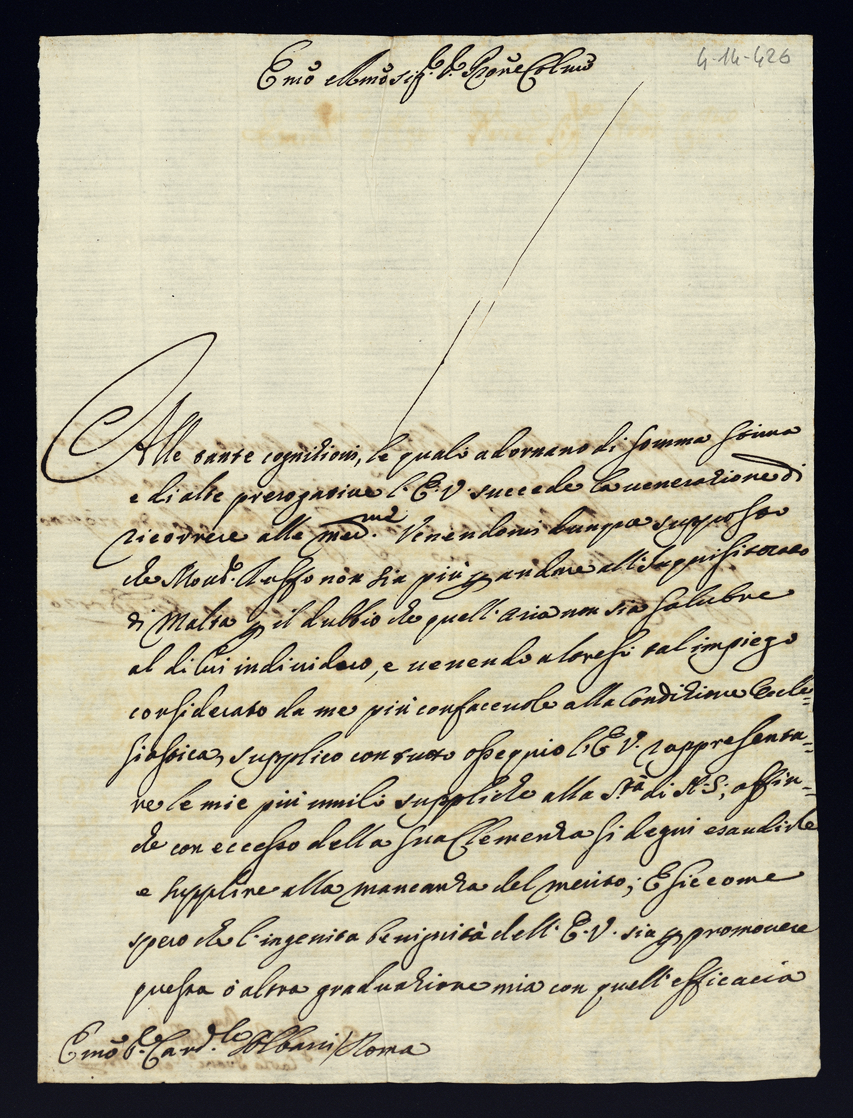 4-14-426
Emõ e Rmõ Sig.re P.re Prõne Colmõ
Alle tante cognitioni, le quali adornano di somma stima
e di alte prerogative l'E.V succede la veneratione di
ricorrere alle med.me Venendomi dunque supposto
che Mons.r Ruffo non sia più per andare all'Inquisitorato
di Malta per il dubbio che quell'aria non sia salubre
al di lui individuo, e venendo altresì tal impiego
considerato da me più confacevole alla Condizione Eccle=
siastica, supplico con tutto ossequio l'E.V. rappresenta=
re le mie più umili suppliche alla S.tà di N.S; affin=
che con eccesso della sua Clemenza si degni esaudirle
e supplire alla mancanza del merito; E siccome
spero che l'ingenita benignità dell'E.V. sia per promovere
questa ò altra graduazione mia con quell'efficacia
Emõ S.r Card.le Albani / Roma